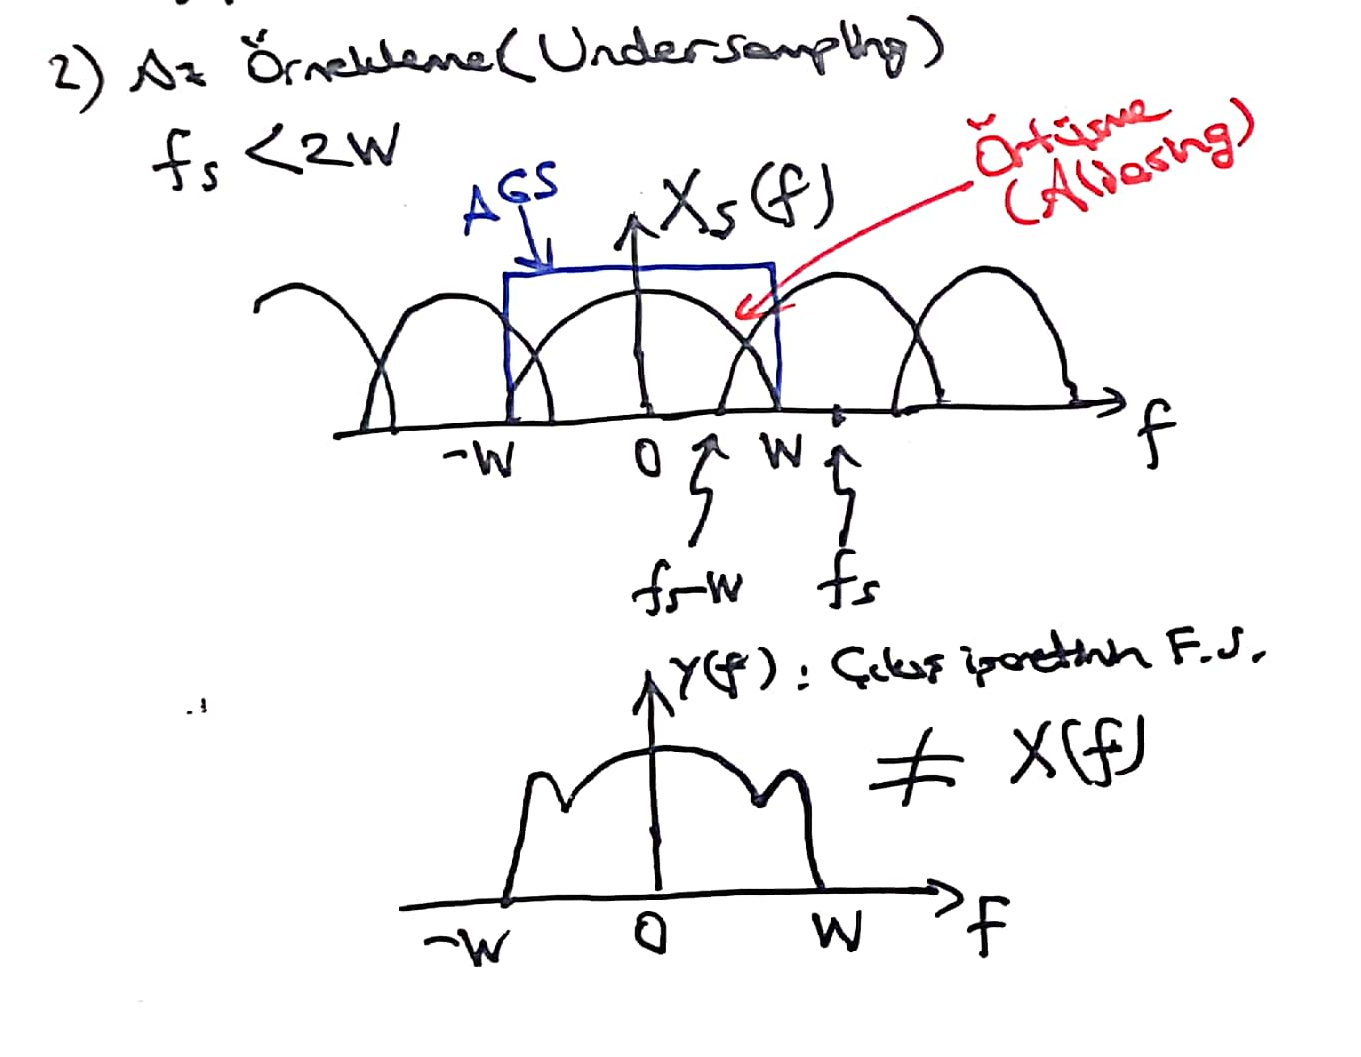 2) Az Örnekleme (Undersampling)
fs < 2W
Örtüşme
(Aliasing)
AGS
Xs(f)
-W 0 W f
fs-W fs
Y(f) : Çıkış işaretinin F.S.
≠ X(f)
-W 0 W f